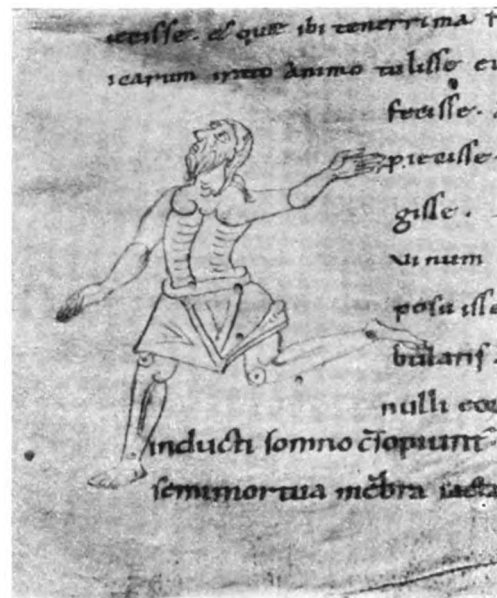 iecisse. & quae ibi tenerrima f
icarum irato animo tulisse eu
fecisse.
p.iecisse.
gisse.
vinum
posuisse
bularis
nulli eor
inducti somno c̄sopiunt
semimortua mēbra iacta